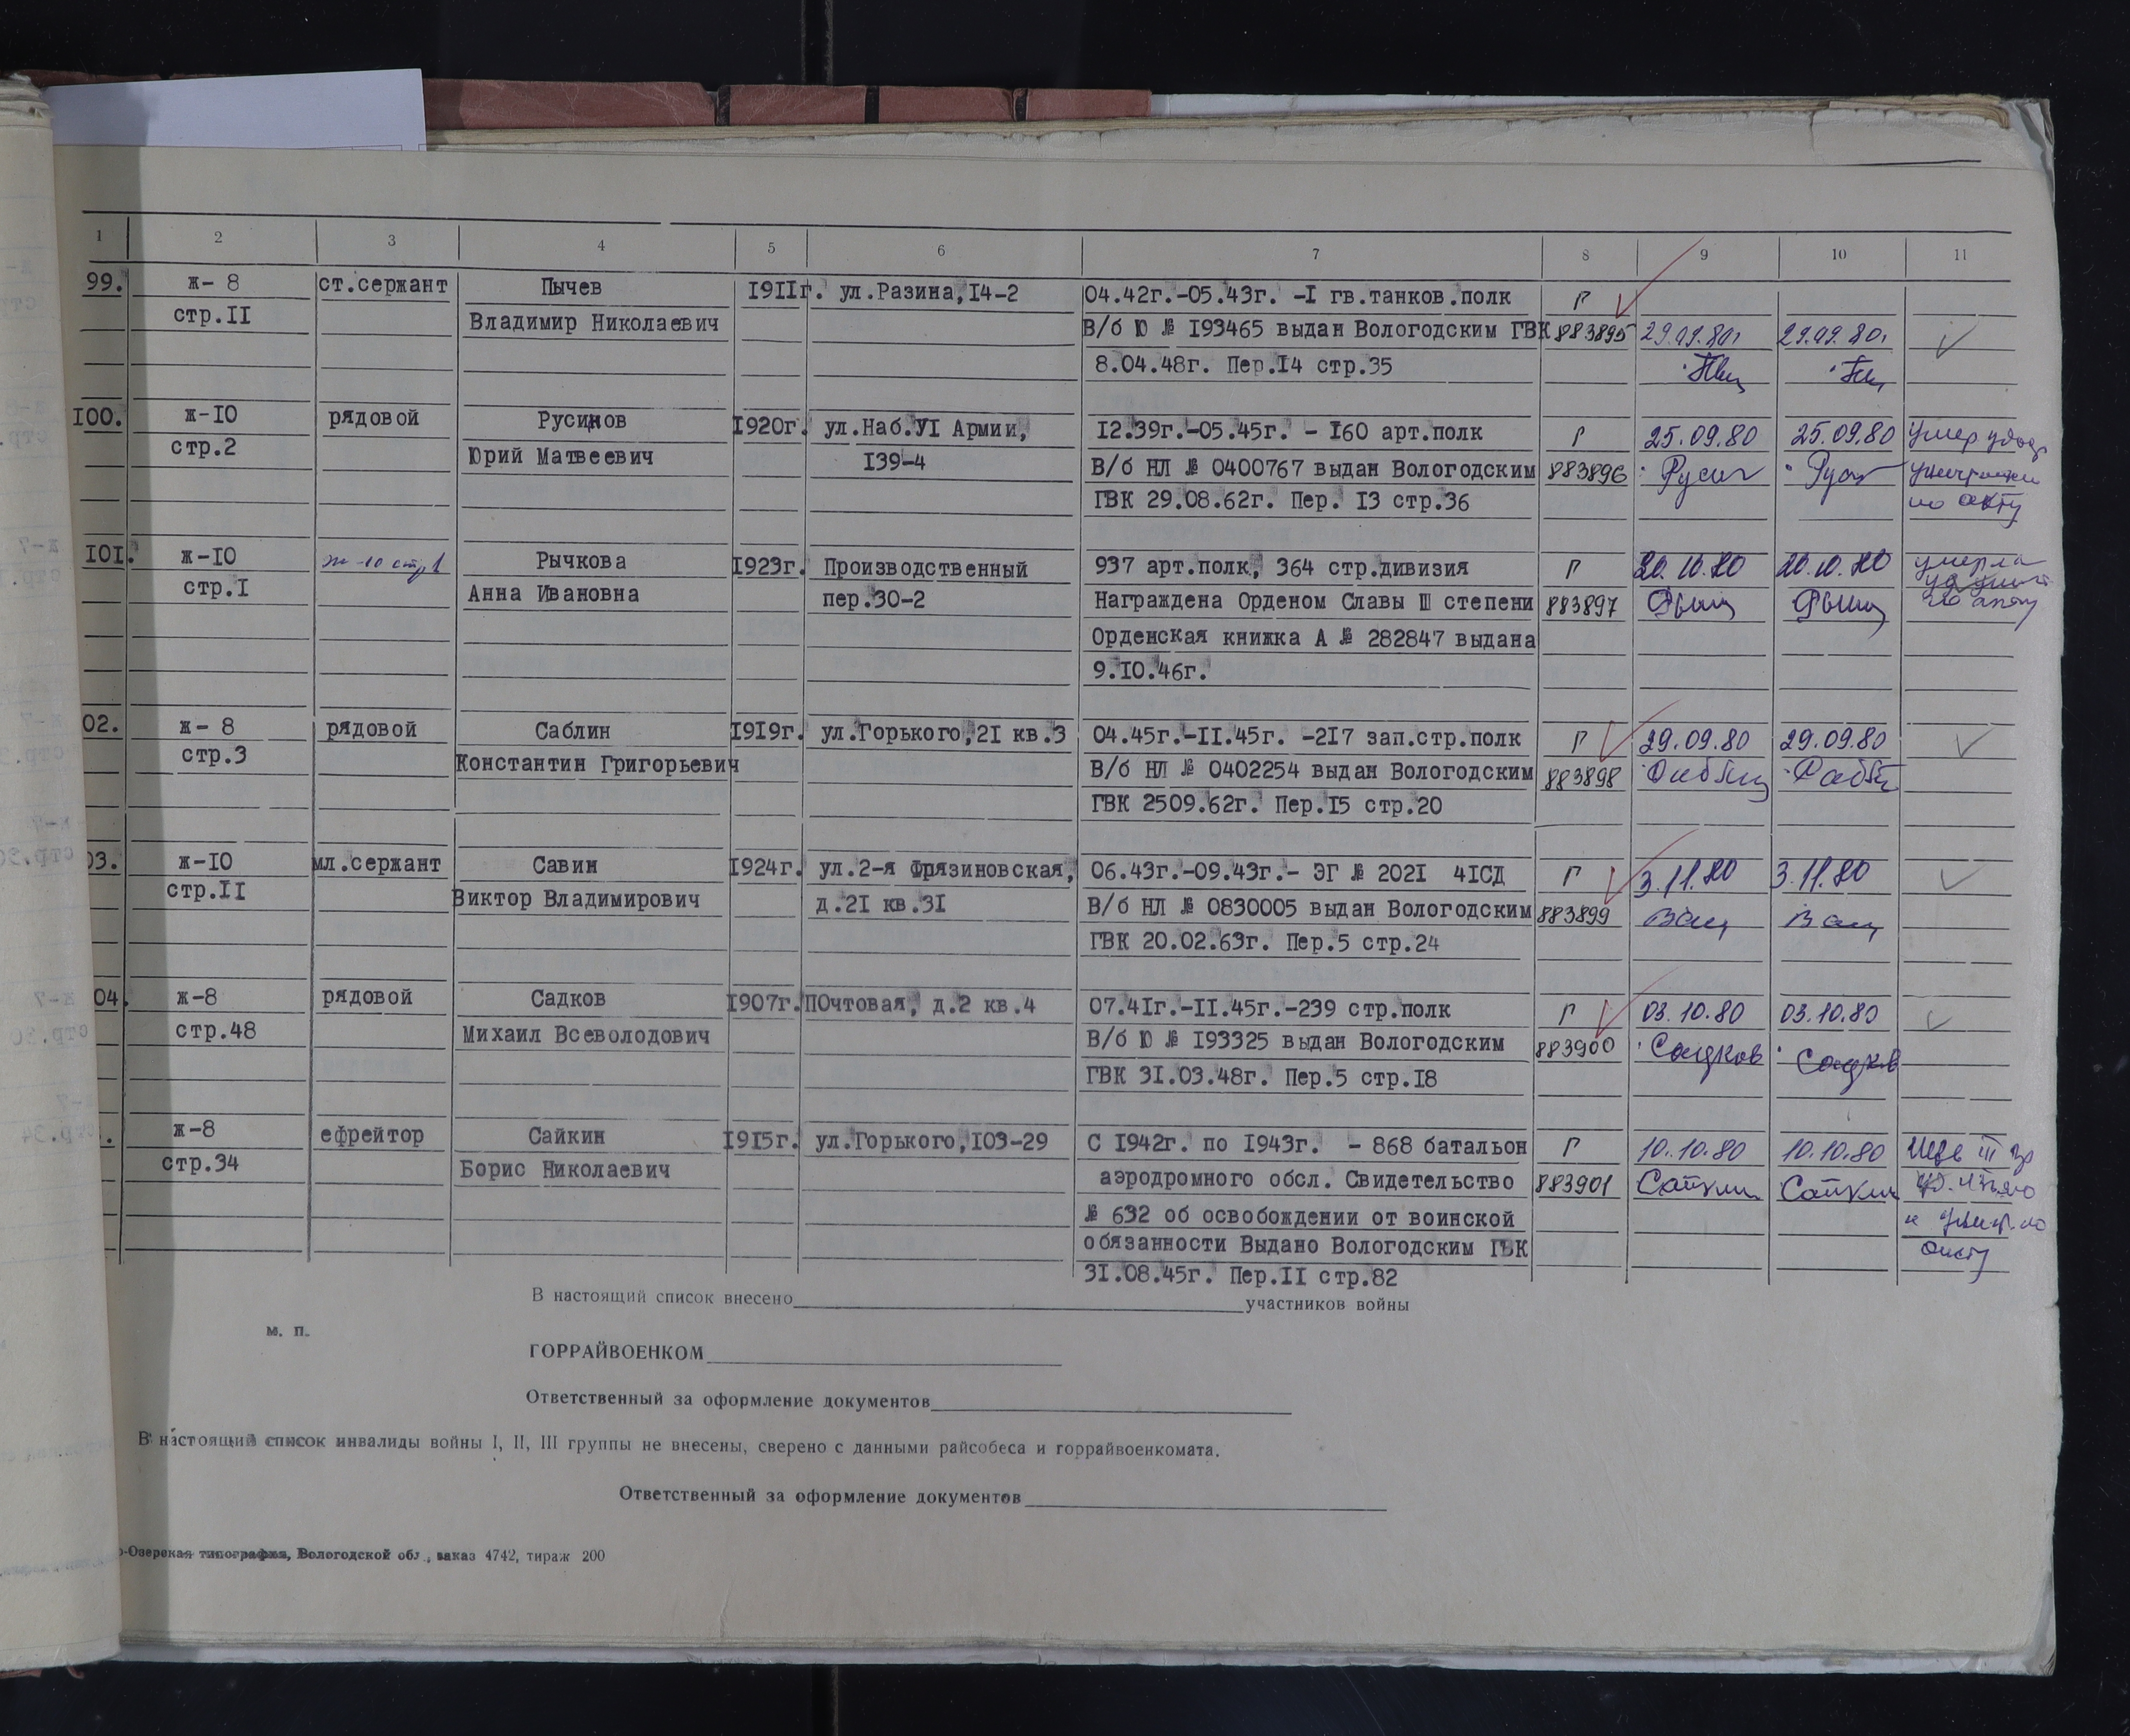 1 2 3 4 5 6 7 8 9 10 11
99. ж- 8 ст.сержант Пычев 1911г. ул.Разина,14-2 04.42г.-05.43г. -I гв.танков.полк Г
стр.II Владимир Николаевич В/б Ю № 193465 выдан Вологодским ГВК 883895 29.09.80г 29.09.80г
8.04.48г. Пер.14 стр.35
100. ж-10 рядовой Русинов 1920г. ул.Наб.УI Армии, 12.39г.-05.45г. - 160 арт.полк Г 25.09.80 25.09.80 Умер удов
стр.2 Юрий Матвеевич 139-4 В/б НЛ № 0400767 выдан Вологодским 883896 Русин Рус
ГВК 29.08.62г. Пер. 13 стр.36 по акту
101. ж-10 ж-10 стр1 Рычкова 1923г. Производственный 937 арт.полк, 364 стр.дивизия Г 20.10.80 20.10.80 умерла
стр.I Анна Ивановна пер.30-2 Награждена Орденом Славы Ш степени 883897 по акту
Орденская книжка А № 282847 выдана
9.10.46г.
02. ж- 8 рядовой Саблин 1919г. ул.Горького,21 кв.3 04.45г.-11.45г. -217 зап.стр.полк Г 29.09.80 29.09.80
стр.3 Константин Григорьевич В/б НЛ № 0402254 выдан Вологодским 883898
ГВК 2509.62г. Пер.15 стр.20
03. ж-10 мл.сержант Савин 1924г. ул.2-я Фрязиновская, 06.43г.-09.43г.- ЭГ № 2021 41СД Г 3.11.80 3.11.80
стр.II Виктор Владимирович д.21 кв.31 В/б НЛ № 0830005 выдан Вологодским 883899
ГВК 20.02.63г. Пер.5 стр.24
04. ж-8 рядовой Садков 1907г. ПОчтовая, д.2 кв.4 07.41г.-11.45г.-239 стр.полк Г 03.10.80 03.10.80
стр.48 Михаил Всеволодович В/б Ю № 193325 выдан Вологодским 883900 Садков Садков
ГВК 31.03.48г. Пер.5 стр.18
. ж-8 ефрейтор Сайкин 1915г. ул.Горького,103-29 С 1942г. по 1943г. - 868 батальон Г 10.10.80 10.10.80
стр.34 Борис Николаевич аэродромного обсл. Свидетельство 883901 Сайкин Сайкин
№ 632 об освобождении от воинской
обязанности Выдано Вологодским ГВК
31.08.45г. Пер.II стр.82
В настоящий список внесено участников войны
м. п.
ГОРРАЙВОЕНКОМ
Ответственный за оформление документов
В настоящий список инвалиды войны I, II, III группы не внесены, сверено с данными райсобеса и горрайвоенкомата.
Ответственный за оформление документов
о-Озерская типография, Вологодской обл., заказ 4742, тираж 200